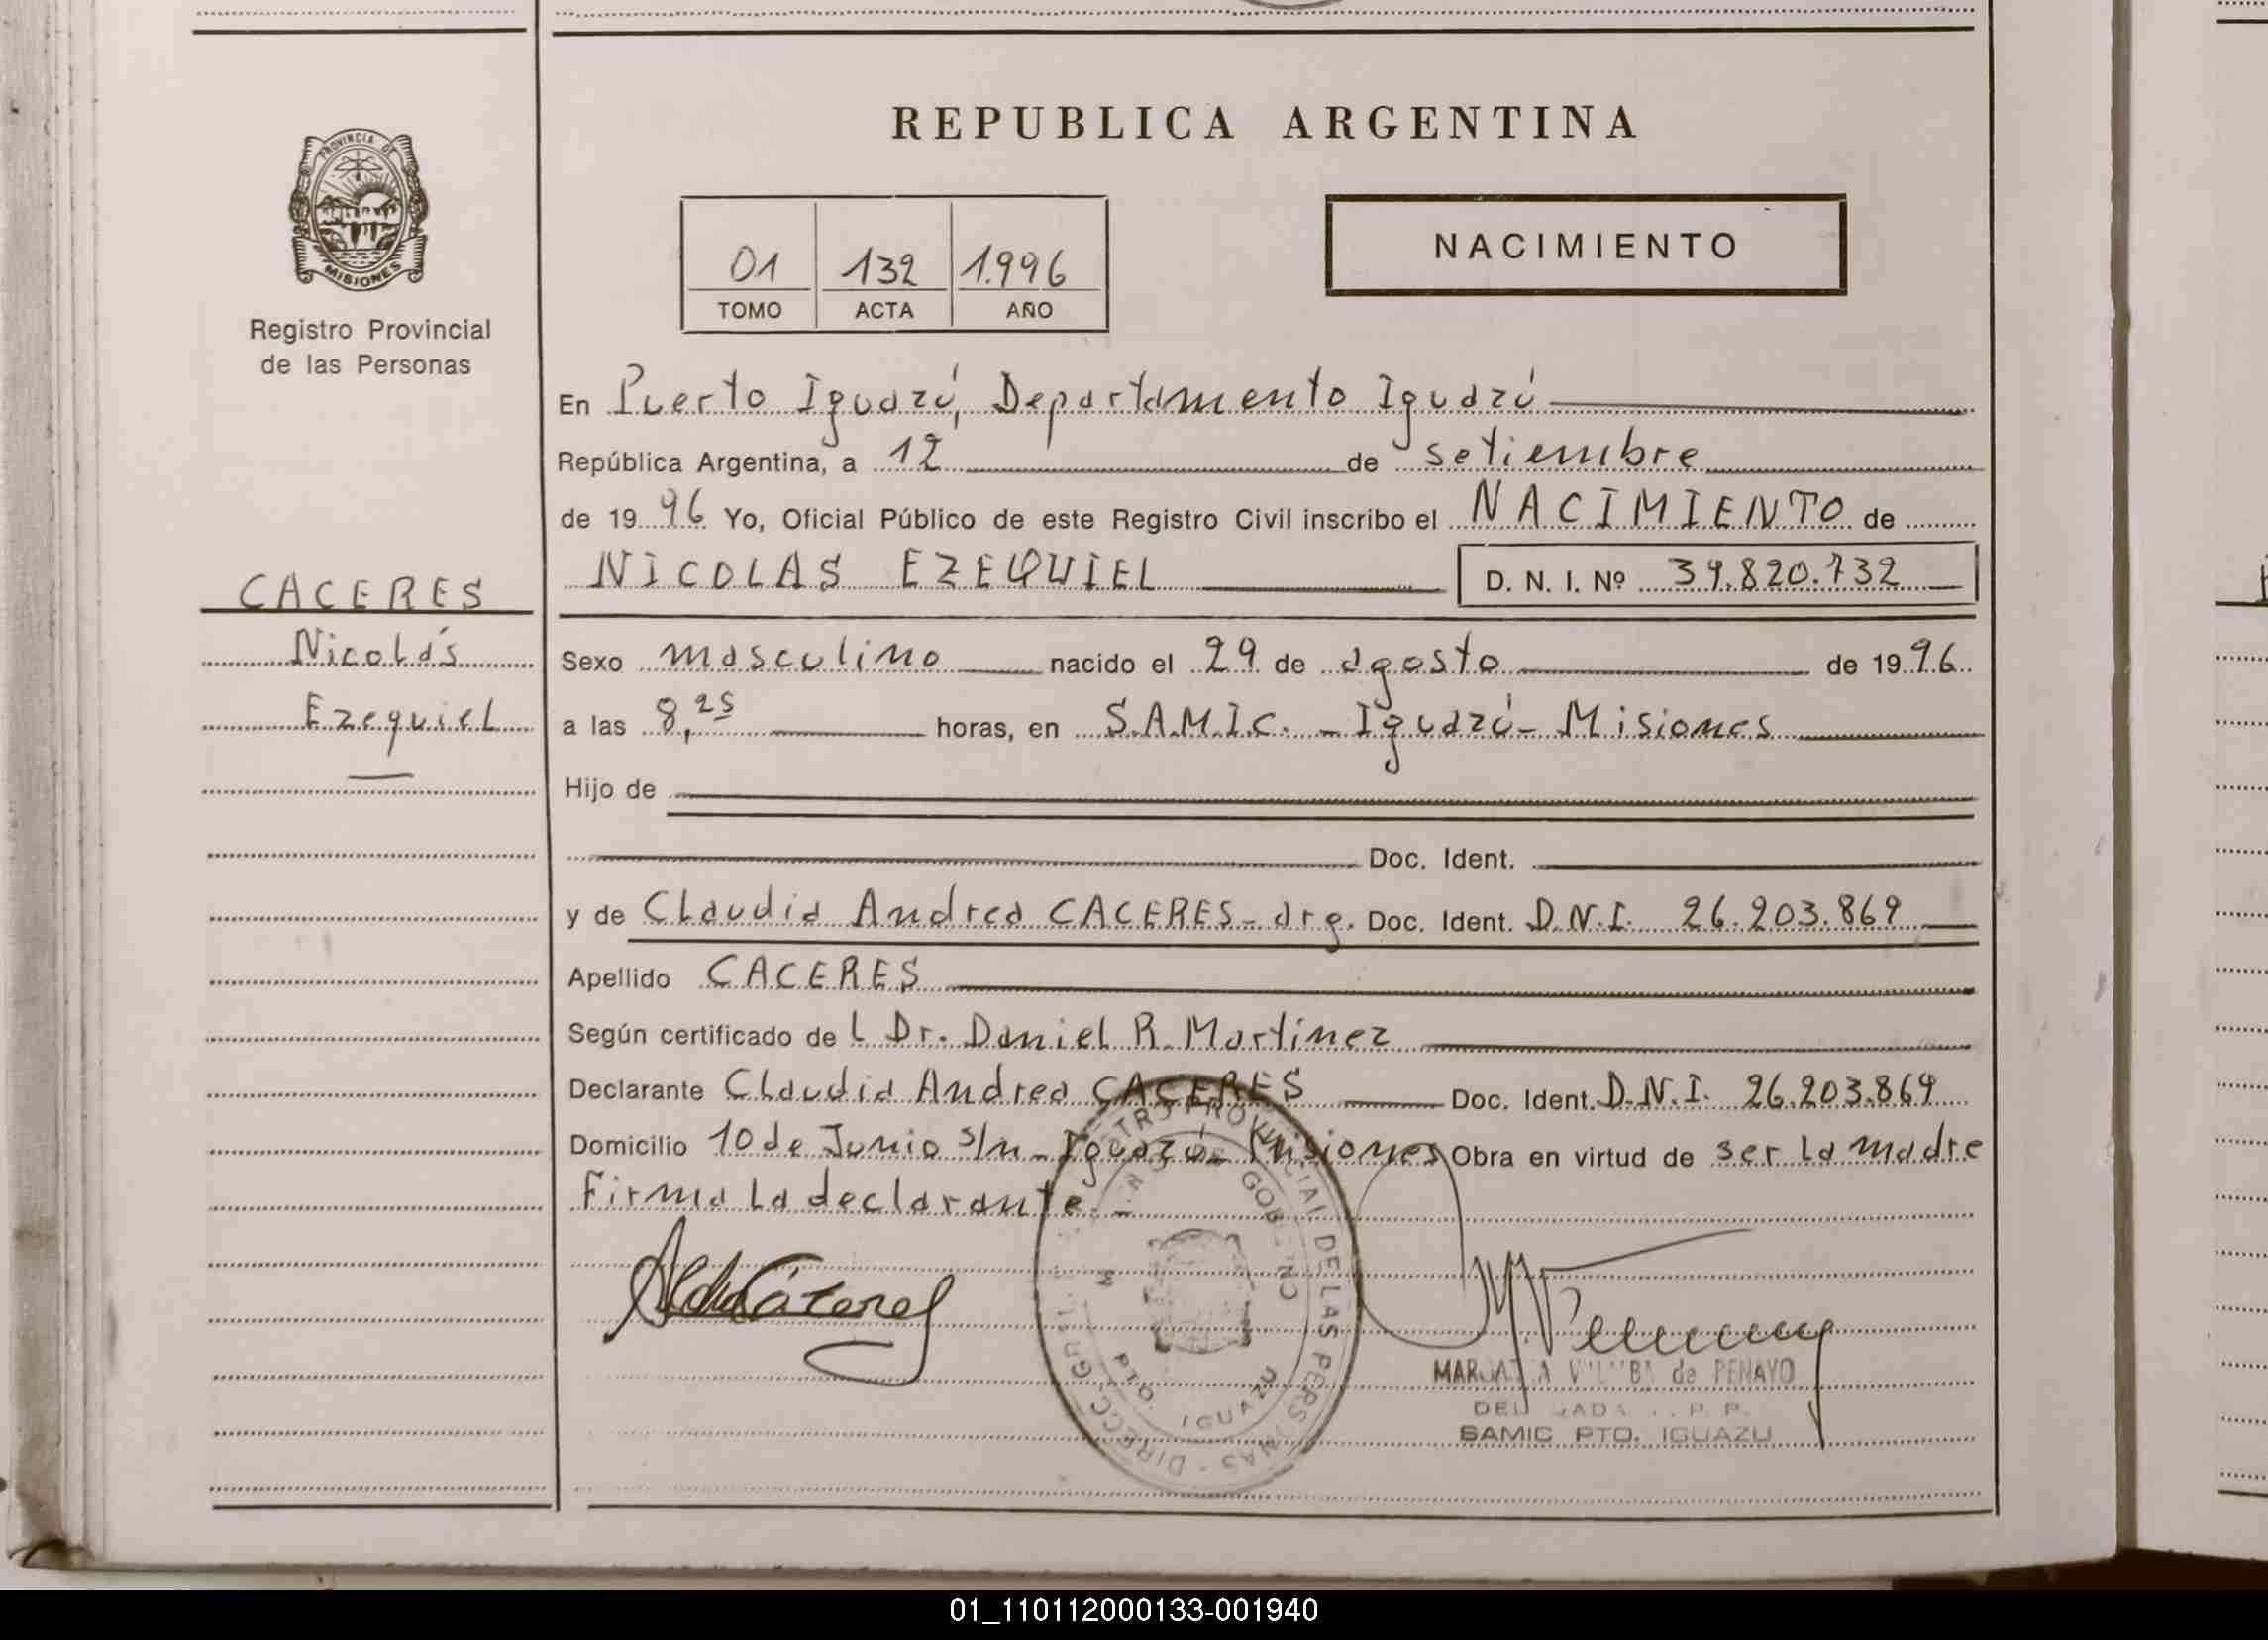 REPUBLICA ARGENTINA
PROVINCIA DE
MISIONES
Registro Provincial
de las Personas
01 132 1.996
TOMO ACTA AÑO
NACIMIENTO
En Puerto Iguazú, Departamento Iguazú
República Argentina, a 12 de setiembre
de 1996 Yo, Oficial Público de este Registro Civil inscribo el NACIMIENTO de
NICOLAS EZEQUIEL D. N. I. Nº 39.820.732
CACERES
Nicolás
Ezequiel
Sexo masculino nacido el 29 de agosto de 1996
a las 8,25 horas, en S.A.M.I.C. - Iguazú - Misiones
Hijo de
Doc. Ident.
y de Claudia Andrea CACERES - arg. Doc. Ident. D.N.I. 26.203.869
Apellido CACERES
Según certificado del Dr. Daniel R. Martínez
Declarante Claudia Andrea CACERES Doc. Ident. D.N.I. 26.203.869
Domicilio 10 de Junio s/n - Iguazú - Misiones Obra en virtud de ser la madre
Firma la declarante.
PROVINCIAL DE LAS PERSONAS
PTO. IGUAZU
de PENAYO
SAMIC PTO. IGUAZU
01_110112000133-001940